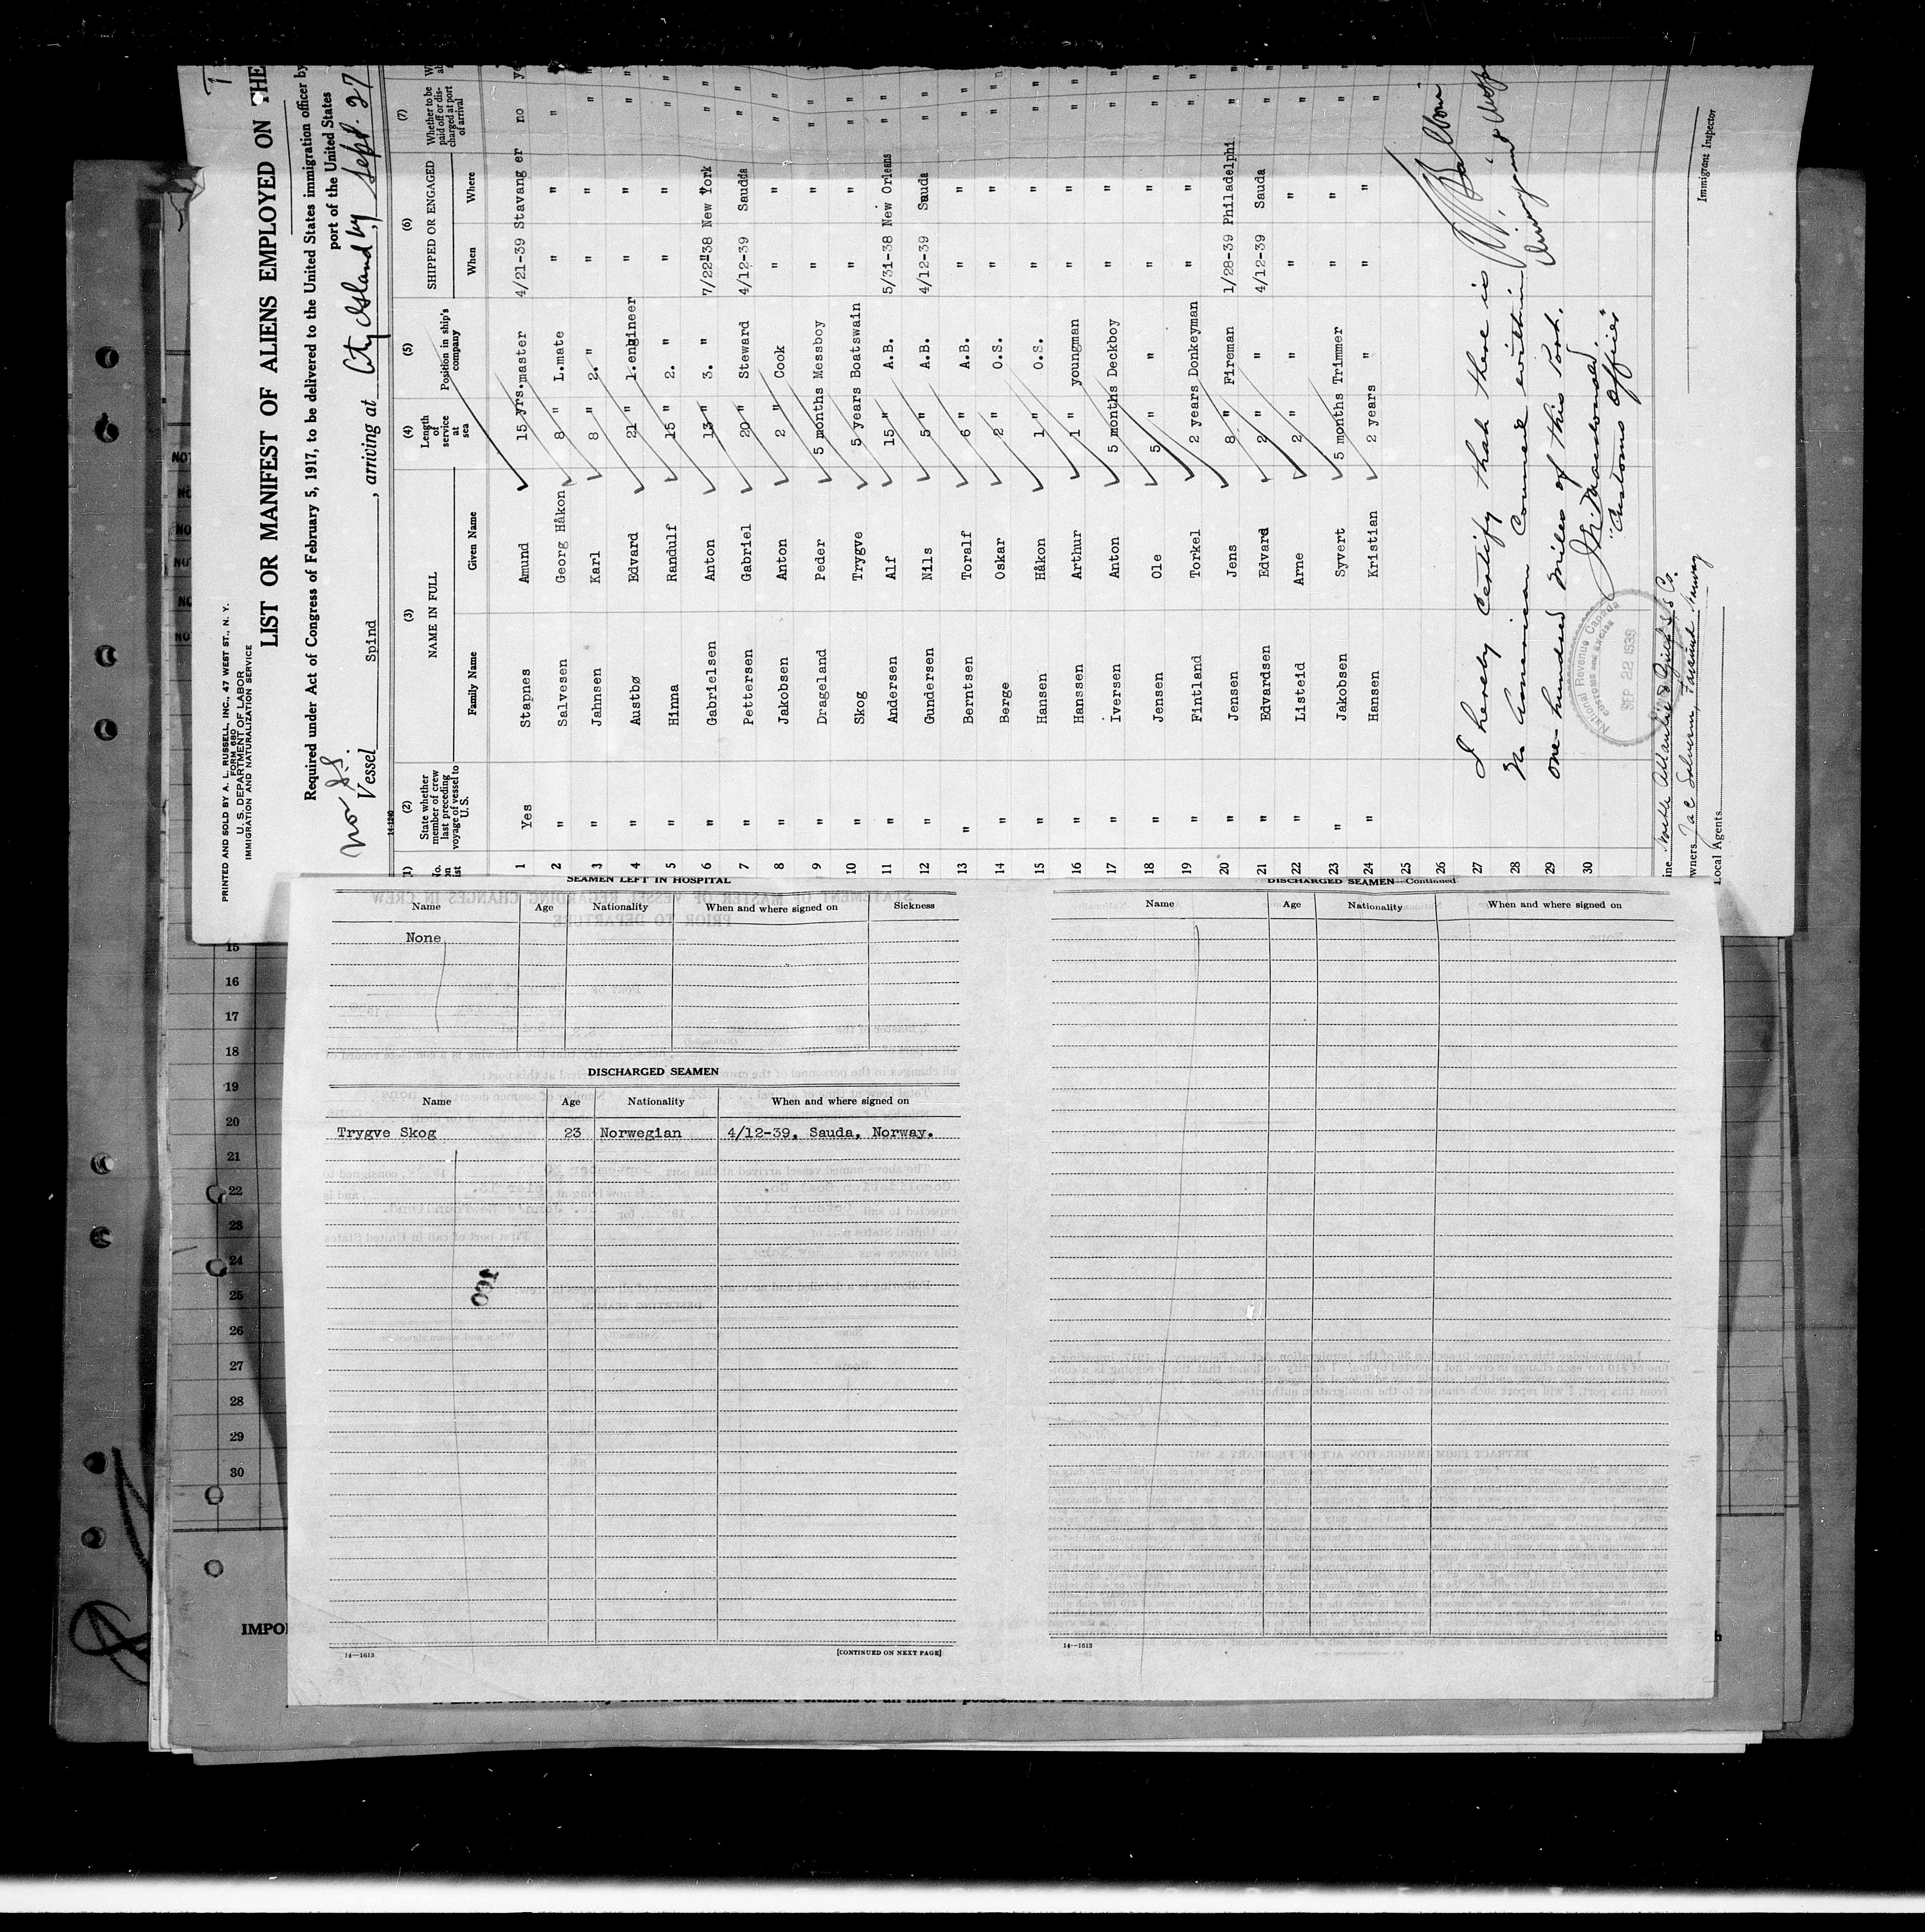 PRINTED AND SOLD BY A. L. RUSSELL, INC., 47 WEST ST., N. Y.
FORM 680
U. S. DEPARTMENT OF LABOR
IMMIGRATION AND NATURALIZATION SERVICE
LIST OR MANIFEST OF ALIENS EMPLOYED ON THE
Required under Act of Congress of February 5, 1917, to be delivered to the United States immigration officer by
port of the United States
Nor S.S.
Vessel Spind, arriving at City Island by, Sept. 27
14-1240
(1) (2) (3) (4) (5) (6) (7)
State whether member of crew last preceding voyage of vessel to U.S.
NAME IN FULL
Family Name Given Name
Length of service at sea
Position in ship's company
SHIPPED OR ENGAGED
When Where
Whether to be paid off or discharged at port of arrival
1 Yes Stapnes Amund 15 yrs. master 4/21-39 Stavang er no
2 " Salvesen Georg Håkon 8 " L.mate " " "
3 " Jahnsen Karl 8 " 2. " " " "
4 " Austbø Edvard 21 " 1.engineer " " "
5 " Hinna Randulf 15 " 2. " " " "
6 " Gabrielsen Anton 13 " 3. " 7/22"38 New York "
7 " Pettersen Gabriel 20 " Steward 4/12-39 Saudda "
8 " Jakobsen Anton 2 " Cook " " "
9 " Drageland Peder 5 months Messboy " " "
10 " Skog Trygve 5 years Boatswain " " "
11 " Andersen Alf 15 " A.B. 5/31-38 New Orleans "
12 " Gundersen Nils 5 " A.B. 4/12-39 Sauda "
13 " Berntsen Toralf 6 " A.B. " " "
14 " Berge Oskar 2 " O.S. " " "
15 " Hansen Håkon 1 " O.S. " " "
16 " Hanssen Arthur 1 " youngman " " "
17 " Iversen Anton 5 months Deckboy " " "
18 " Jensen Ole 5 " " " " "
19 " Fintland Torkel 2 years Donkeyman " " "
20 " Jensen Jens 8 " Fireman 1/28-39 Philadelphi "
21 " Edvardsen Edvard 2 " " 4/12-39 Sauda "
22 " Listeid Arne 2 " " " " "
23 " Jakobsen Syvert 5 months Trimmer " " "
24 " Hansen Kristian 2 years " " " "
25
26
27
28
29
30
I hereby Certify that there is
no American Counsel within
one-hundred miles of this Port.
Customs Officer
National Revenue Canada
Customs and Excise
SEP 22 1939
Local Agents
Immigrant Inspector
SEAMEN LEFT IN HOSPITAL
Name Age Nationality When and where signed on Sickness
None
DISCHARGED SEAMEN
Name Age Nationality When and where signed on
Trygve Skog 23 Norwegian 4/12-39, Sauda, Norway.
14—1613 [CONTINUED ON NEXT PAGE]
DISCHARGED SEAMEN—Continued
Name Age Nationality When and where signed on
14—1613
15
16
17
18
19
20
21
22
23
24
25
26
27
28
29
30
IMPO